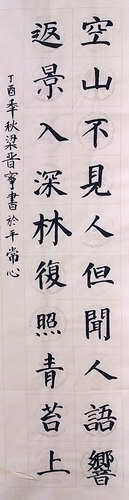 空山不見人但聞人語響
返景入深林復照青苔上
丁酉年秋梁晋寧書於平常心